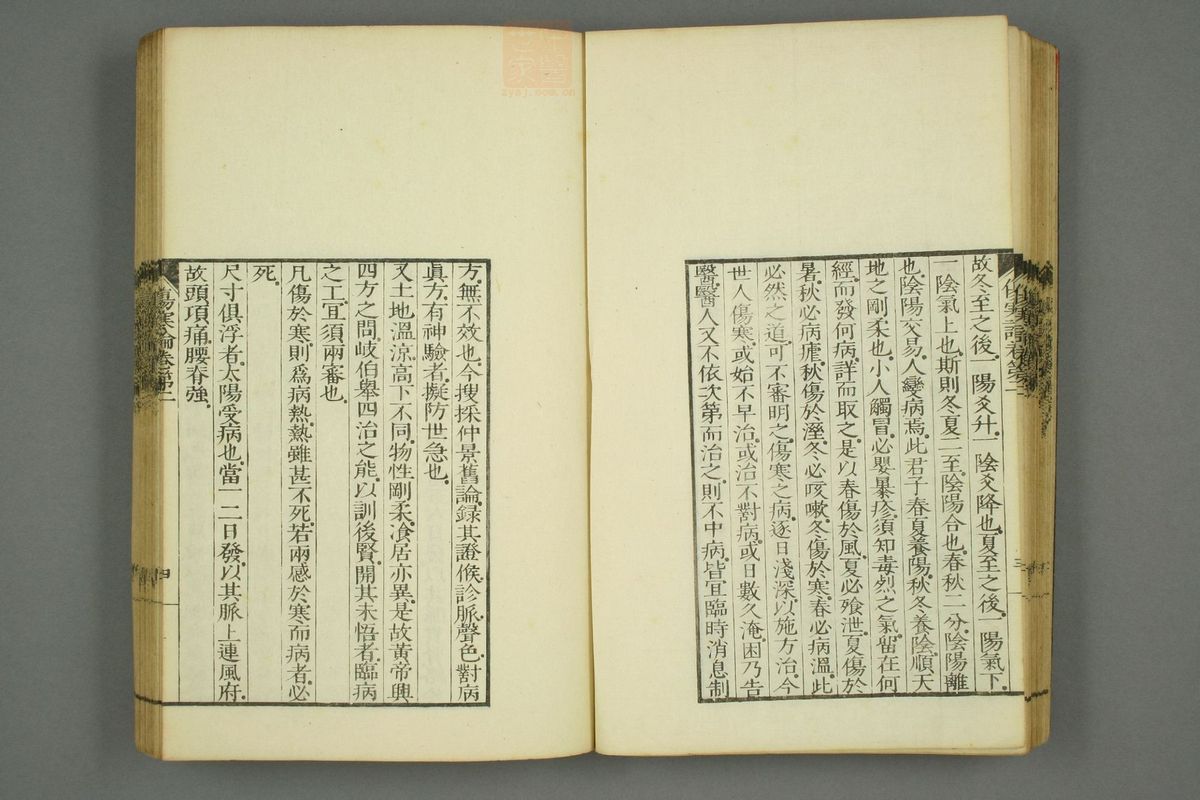 故冬至之後。一陽爻升。一陰爻降也。夏至之後。一陽氣下。
一陰氣上也。斯則冬夏二至。陰陽合也。春秋二分。陰陽離
也。陰陽交易。人變病焉。此君子春夏養陽。秋冬養陰。順天
地之剛柔也。小人觸冒。必嬰暴疹。須知毒烈之氣。留在何
經。而發何病。詳而取之。是以春傷於風。夏必飧泄。夏傷於
暑。秋必病瘧。秋傷於溼。冬必咳嗽。冬傷於寒。春必病溫。此
必然之道。可不審明之。傷寒之病。逐日淺深。以施方治。今
世人傷寒。或始不早治。或治不對病。或日數久淹。困乃告
醫。醫人又不依次第而治之。則不中病。皆宜臨時消息制
三
方。無不效也。今搜採仲景舊論。録其證候。診脈。聲色。對病
眞方。有神驗者。擬防世急也。
又土地溫涼。高下不同。物性剛柔。飡居亦異。是故黃帝興
四方之問。岐伯舉四治之能。以訓後賢。開其未悟者。臨病
之工。宜須兩審也。
凡傷於寒。則爲病熱。熱雖甚不死。若兩感於寒而病者。必
死。
尺寸俱浮者。太陽受病也。當一二日發。以其脈上連風府。
故頭項痛。腰脊強。
傷寒論卷第二
四
zysj.com.cn